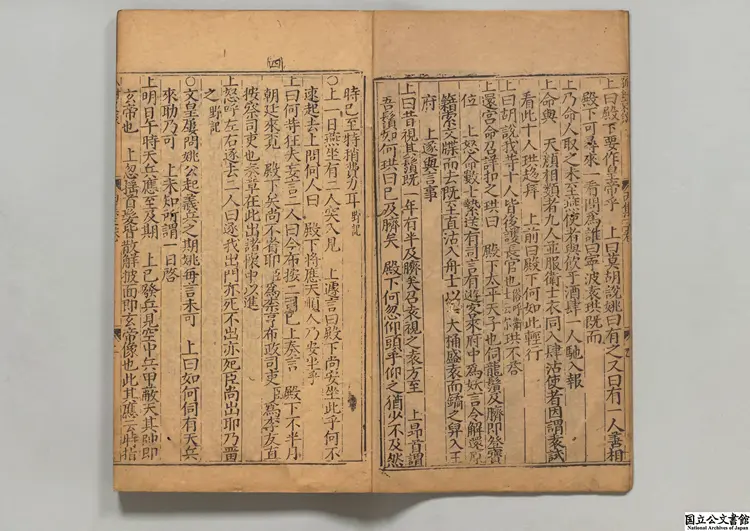 上曰殿下要作皇帝乎 上曰莫胡說姚曰有之又曰有一人善相
殿下可尋來一看問爲誰曰寧波袁珙旣而
上乃命人取之未至燕使者與飲于酒肆一人馳入報
上命與 天顏相類者九人並服衛士衣同入肆沽使者因謂袁試
看此十人珙趨拜 上前曰殿下何如此輕行
上曰胡說我等十人皆後護長官也 珙不答
上還宮命召詳扣之珙曰 殿下太平天子也伺龍鬚及臍即登寶
位 上怒命數士縶送有司言有遊客來府中爲妖言今解還
籍索文牒而去旣至直沽入舟士以 大桶盛袁而鐍之舁入王
府 上遂與言事
上曰昔視其鬚旣一年有半及臍矣乃袁視之袁方至 上昂首謂
吾鬚如何珙曰已及臍矣 殿下何忽仰頭乎仰之猶必不及然
四
時已至特捎費力耳 野記
○上一日燕坐有二人突入見 上遽言曰殿下尚安坐此乎何不
速起去上問何人曰 殿下將應天順人乃安坐乎
上曰何等狂夫妄言二人曰今布按二司已上奏言 殿下不半月
朝廷來覓 殿下矣尚不省耶 爲柰亨布政司吏 爲李友直
按察司吏也奏草在此出諸懷中以進
上怒呼左右逐去二人曰逐我出門亦死不出亦死臣尚出耶乃畱
之 野記
○文皇屢問姚公起義兵之期姚每言未可 上曰如何伺有天兵
來助乃可 上未知所謂一日啓
上明日午時天兵應至及期 上已發兵見空中兵甲蔽天其帥即
玄帝也 上忽搖首髮皆散解披面即玄帝像也此其應云時指
国立公文書館
National Archives of Japan